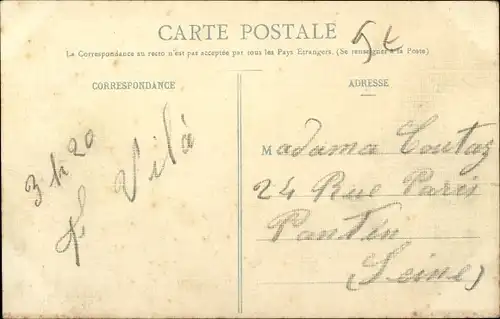 CARTE POSTALE
La Correspondance au recto n'est pas acceptée par tous les Pays Etrangers. (Se renseigner à la Poste)
CORRESPONDANCE
ADRESSE
Madama Coutaz
24 Rue Paris
Pantin
(Seine)
Vilá